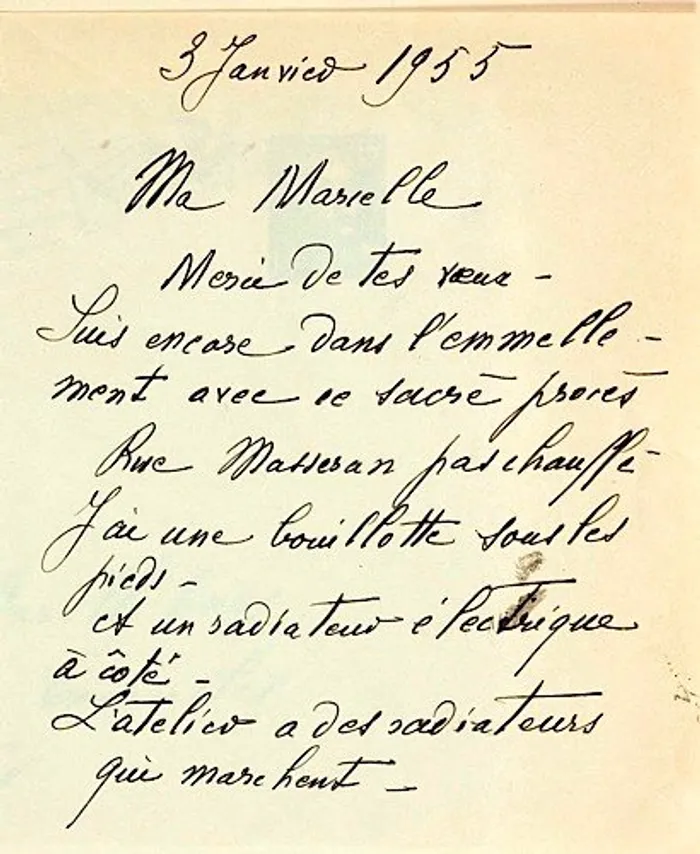 3 Janvier 1955
Ma Marcelle
Merci de tes vœux -
Suis encore dans l'emmelle -
ment avec ce sacré procès
Rue Masseran pas chauffé -
J'ai une bouillotte sous les
pieds -
et un radiateur électrique
à côté -
L'atelier a des radiateurs
qui marchent -